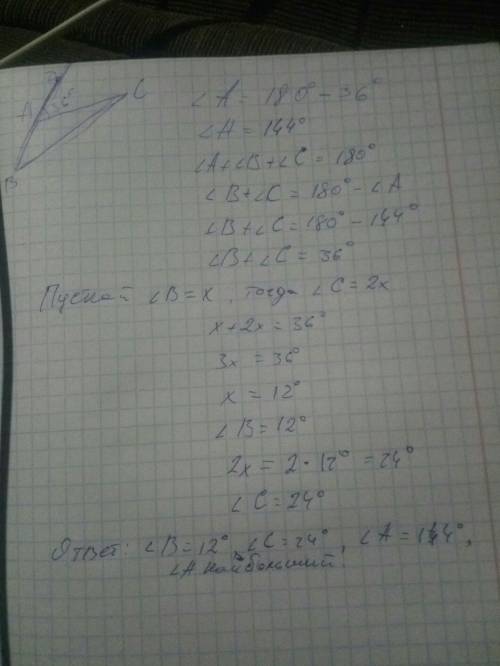 D
A 36° C
B
∠A = 180° - 36°
∠A = 144°
∠A+∠B+∠C = 180°
∠B+∠C = 180° - ∠A
∠B+∠C = 180° - 144°
∠B+∠C = 36°
Пусть ∠B = x, тогда ∠C = 2x
x+2x = 36°
3x = 36°
x = 12°
∠B = 12°
2x = 2 · 12° = 24°
∠C = 24°
Ответ: ∠B = 12°, ∠C = 24°, ∠A = 144°,
∠A наибольший.